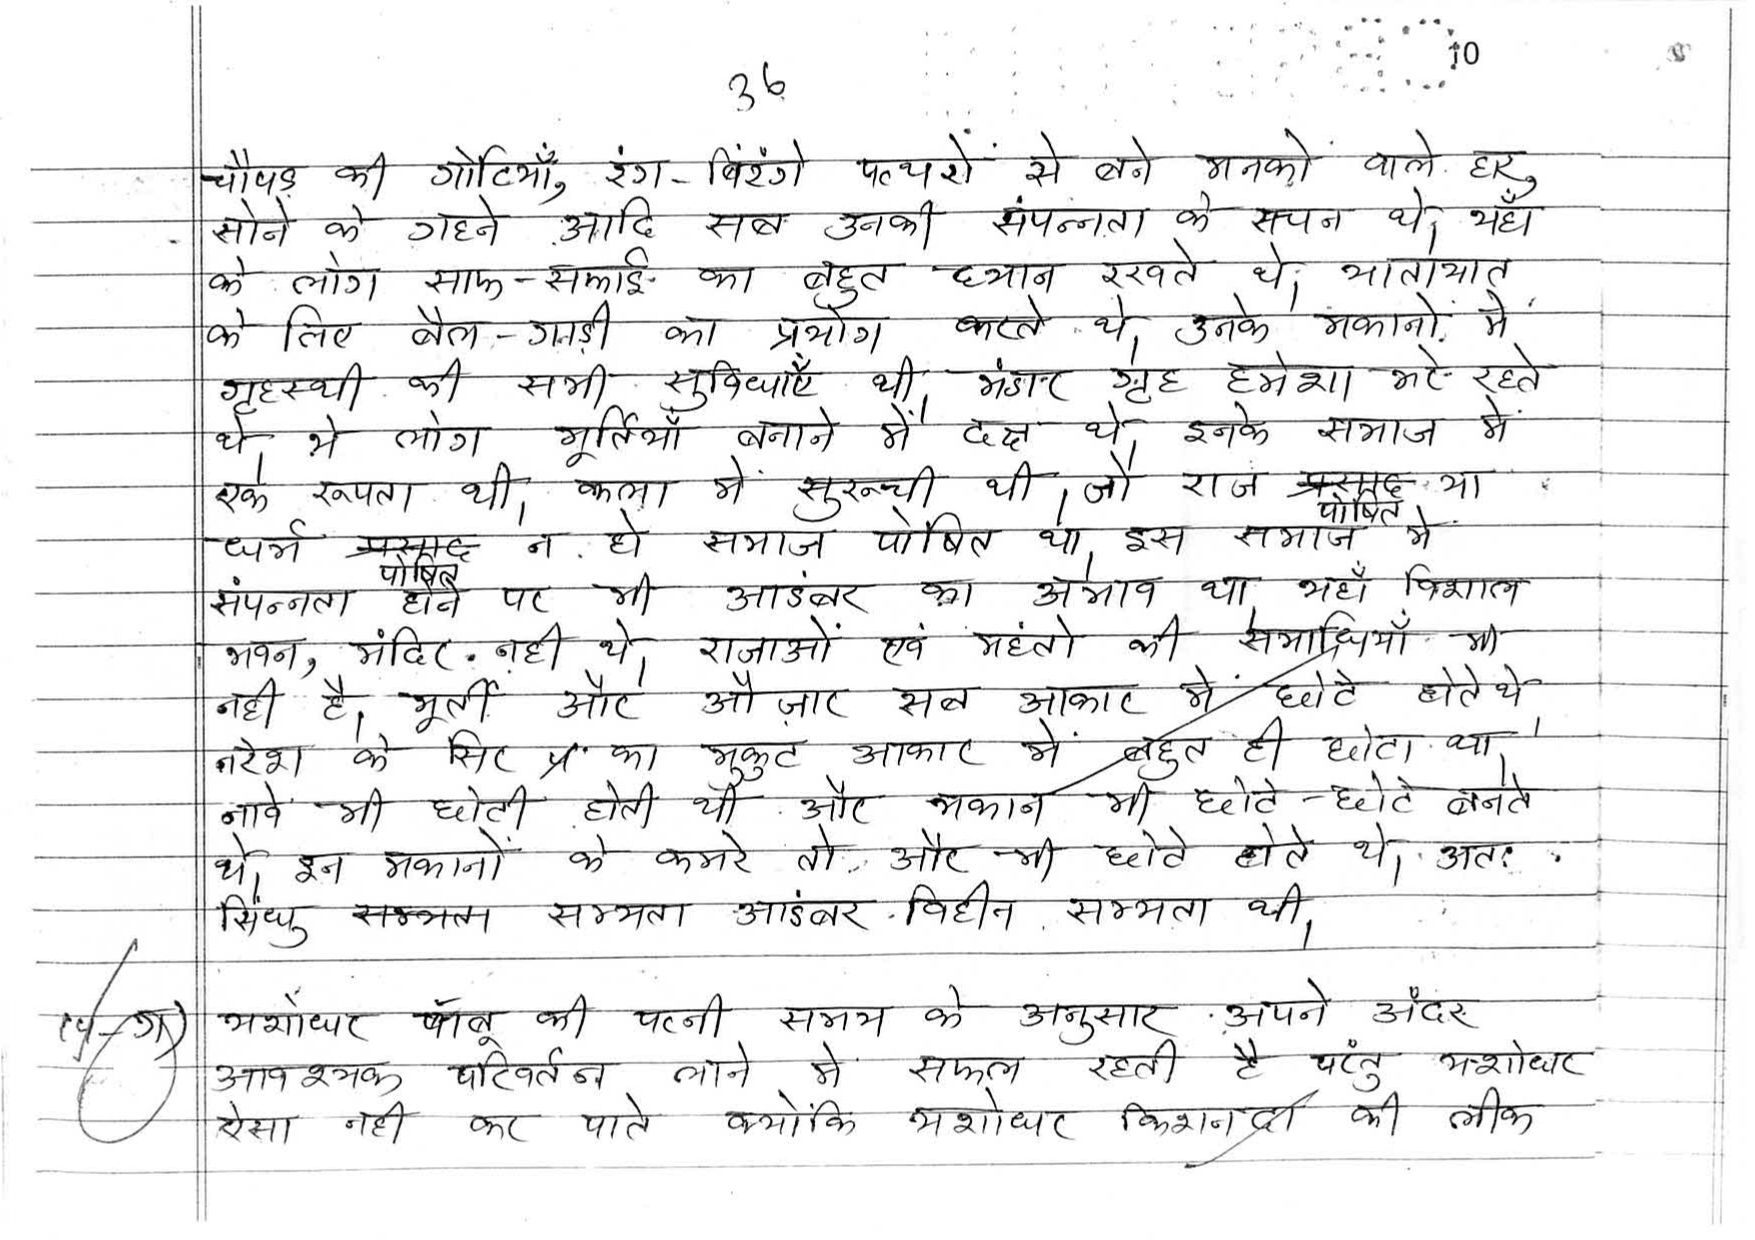 10
36
चौपड़ की गोटियाँ, रंग-बिरंगे पत्थरों से बने मनको वाले हार,
सोने के गहने आदि सब उनकी संपन्नता के सपन थे। यहाँ
के लोग साफ-सफाई का बहुत ध्यान रखते थे। यातायात
के लिए बैल-गाड़ी का प्रयोग करते थे। उनके मकानों में
गृहस्थी की सभी सुविधाएँ थी। भंडार गृह हमेशा भरे रहते
थे। ये लोग मूर्तियाँ बनाने में दक्ष थे। इनके समाज में
एक रूपता थी। कला में सुरूची थी। जो राज प्रसाद पोषित या
धर्म प्रसाद पोषित न हो समाज पोषित था। इस समाज में
संपन्नता होने पर भी आडंबर का अभाव था। यहाँ विशाल
भवन, मंदिर नही थे। राजाओं एवं महंतो की समाधियाँ भी
नही है। मूर्ती और औज़ार सब आकार में छोटे होते थे।
नरेश के सिर प्र का मुकुट आकार में बहुत ही छोटा था।
नावे भी छोटी होती थी और मकान भी छोटे-छोटे बनते
थे। इन मकानों के कमरे तो और भी छोटे होते थे। अतः
सिंधु सभ्यता सभ्यता आडंबर विहीन सभ्यता थी।
यशोधर बाबू की पत्नी समय के अनुसार अपने अंदर
आवश्यक परिवर्तन लाने में सफल रहती है परंतु यशोधर
ऐसा नही कर पाते क्योंकि यशोधर किशनदा की लीक